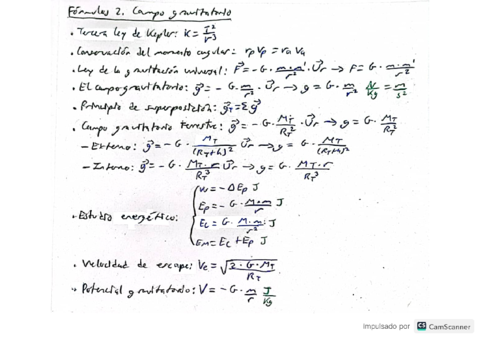 Fórmulas 2. Campo gravitatorio
• Tercera ley de Kepler: K = T²/r³
• Conservación del momento angular: rp Vp = ra Va
• Ley de la gravitación universal: F⃗ = - G · m·m'/r² · U⃗r → F = G · m·m'/r²
• El campo gravitatorio: g⃗ = - G · m/r² · U⃗r → g = G · m/r² N/Kg = m/s²
• Principio de superposición: g⃗T = Σ g⃗
• Campo gravitatorio terrestre: g⃗ = - G · MT/RT² · U⃗r → g = G · MT/RT²
- Externo: g⃗ = - G · MT/(RT+h)² U⃗r → g = G · MT/(RT+h)²
- Interno: g⃗ = - G · MT·r/RT³ U⃗r → g = G · MT·r/RT³
• Estudio energético:
W = - ΔEp J
Ep = - G · M·m/r J
Ec = G · M·m/r² J
Em = Ec + Ep J
• Velocidad de escape: Ve = √(2·G·MT/RT)
• Potencial gravitatorio: V = - G · m/r J/Kg
Impulsado por CS CamScanner